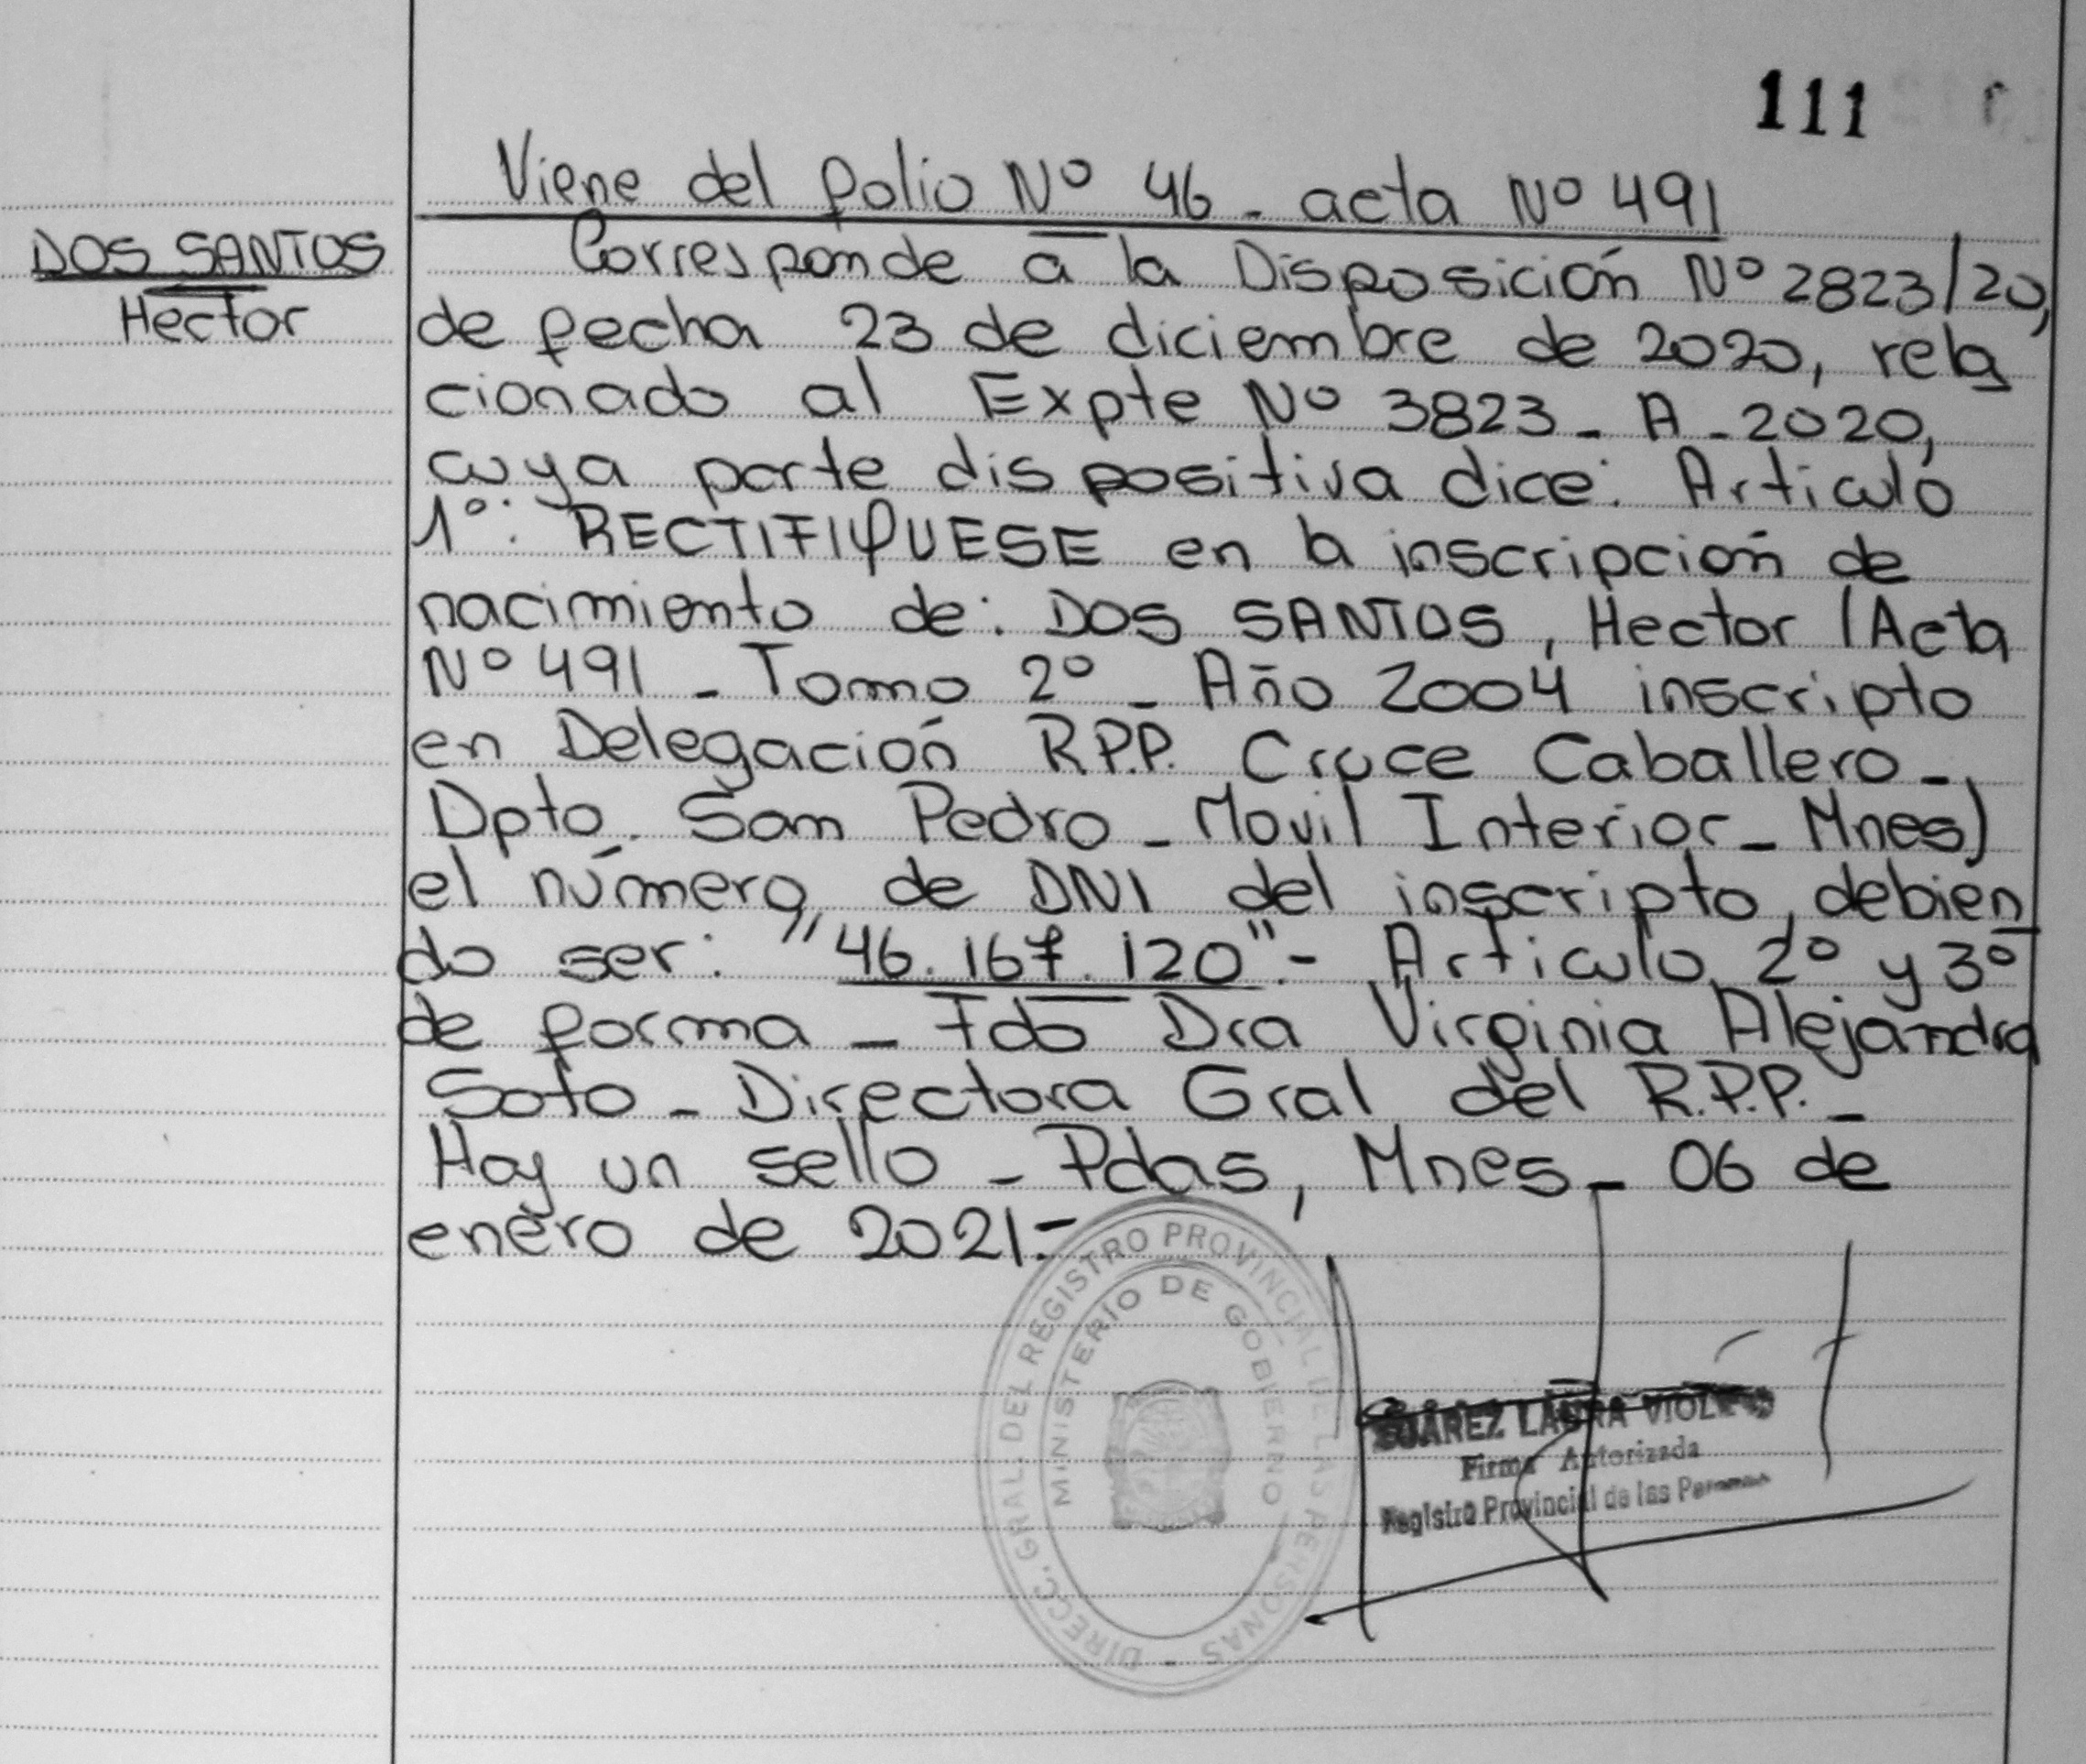 111
Viene del folio Nº 46 - acta Nº 491
DOS SANTOS
Hector
Corresponde a la Disposición Nº 2823/20,
de fecha 23 de diciembre de 2020, rela
cionado al Expte Nº 3823 - A - 2020,
cuya parte dispositiva dice: Articulo
1º: RECTIFIQUESE en la inscripción de
nacimiento de: DOS SANTOS, Hector (Acta
Nº 491 - Tomo 2º - Año 2004 inscripto
en Delegación R.P.P. Cruce Caballero -
Dpto. San Pedro - Movil Interior - Mnes)
el número de DNI del inscripto, debien
do ser: "46.167.120".- Articulo 2º y 3º
de forma - Fdo Dra Virginia Alejandra
Soto - Directora Gral del R.P.P. -
Hay un sello - Pdas, Mnes - 06 de
enero de 2021.-
DIRECC. GRAL. DEL REGISTRO PROVINCIAL DE LAS PERSONAS -
MINISTERIO DE GOBIERNO
SUAREZ LAURA
Firma Autorizada
Registro Provincial de las Personas